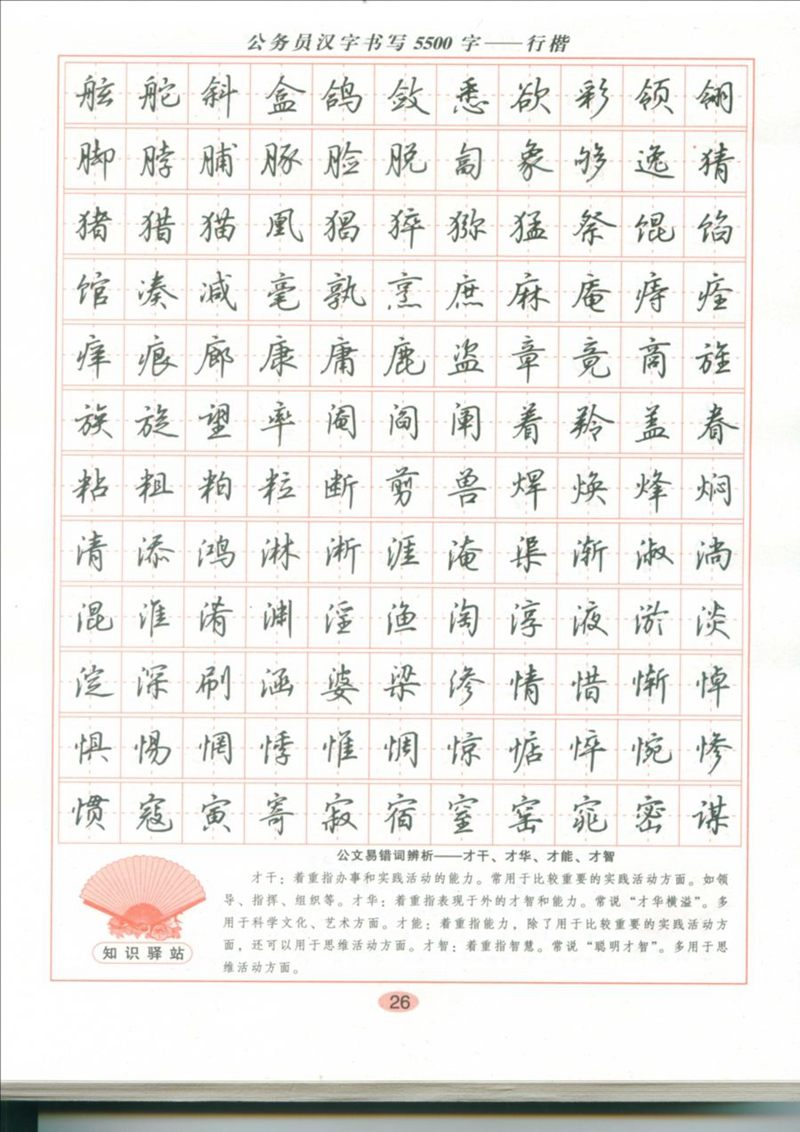 公务员汉字书写5500字——行楷
舷舵斜盒鸽敛悉欲彩领翎
脚脖脯豚脸脱匐象够逸猜
猪猎猫凰猖猝猕猛祭馄馅
馆凑减毫孰烹庶麻庵痔痊
痒痕廊康庸鹿盗章竟商旌
族旋望率阉阎阐着羚盖眷
粘粗粕粒断剪兽焊焕烽焖
清添鸿淋淅涯淹渠渐淑淌
混淮淆渊淫渔淘淳液淤淡
淀深刷涵婆梁渗情惜惭悼
惧惕惘悸惟惆惊惦悴惋惨
惯寇寅寄寂宿窒窑窕密谋
公文易错词辨析——才干、才华、才能、才智
才干：着重指办事和实践活动的能力。常用于比较重要的实践活动方面。如领
导、指挥、组织等。才华：着重指表现于外的才智和能力。常说“才华横溢”。多
用于科学文化、艺术方面。才能：着重指能力，除了用于比较重要的实践活动方
面，还可以用于思维活动方面。才智：着重指智慧。常说“聪明才智”。多用于思
维活动方面。
知识驿站
26